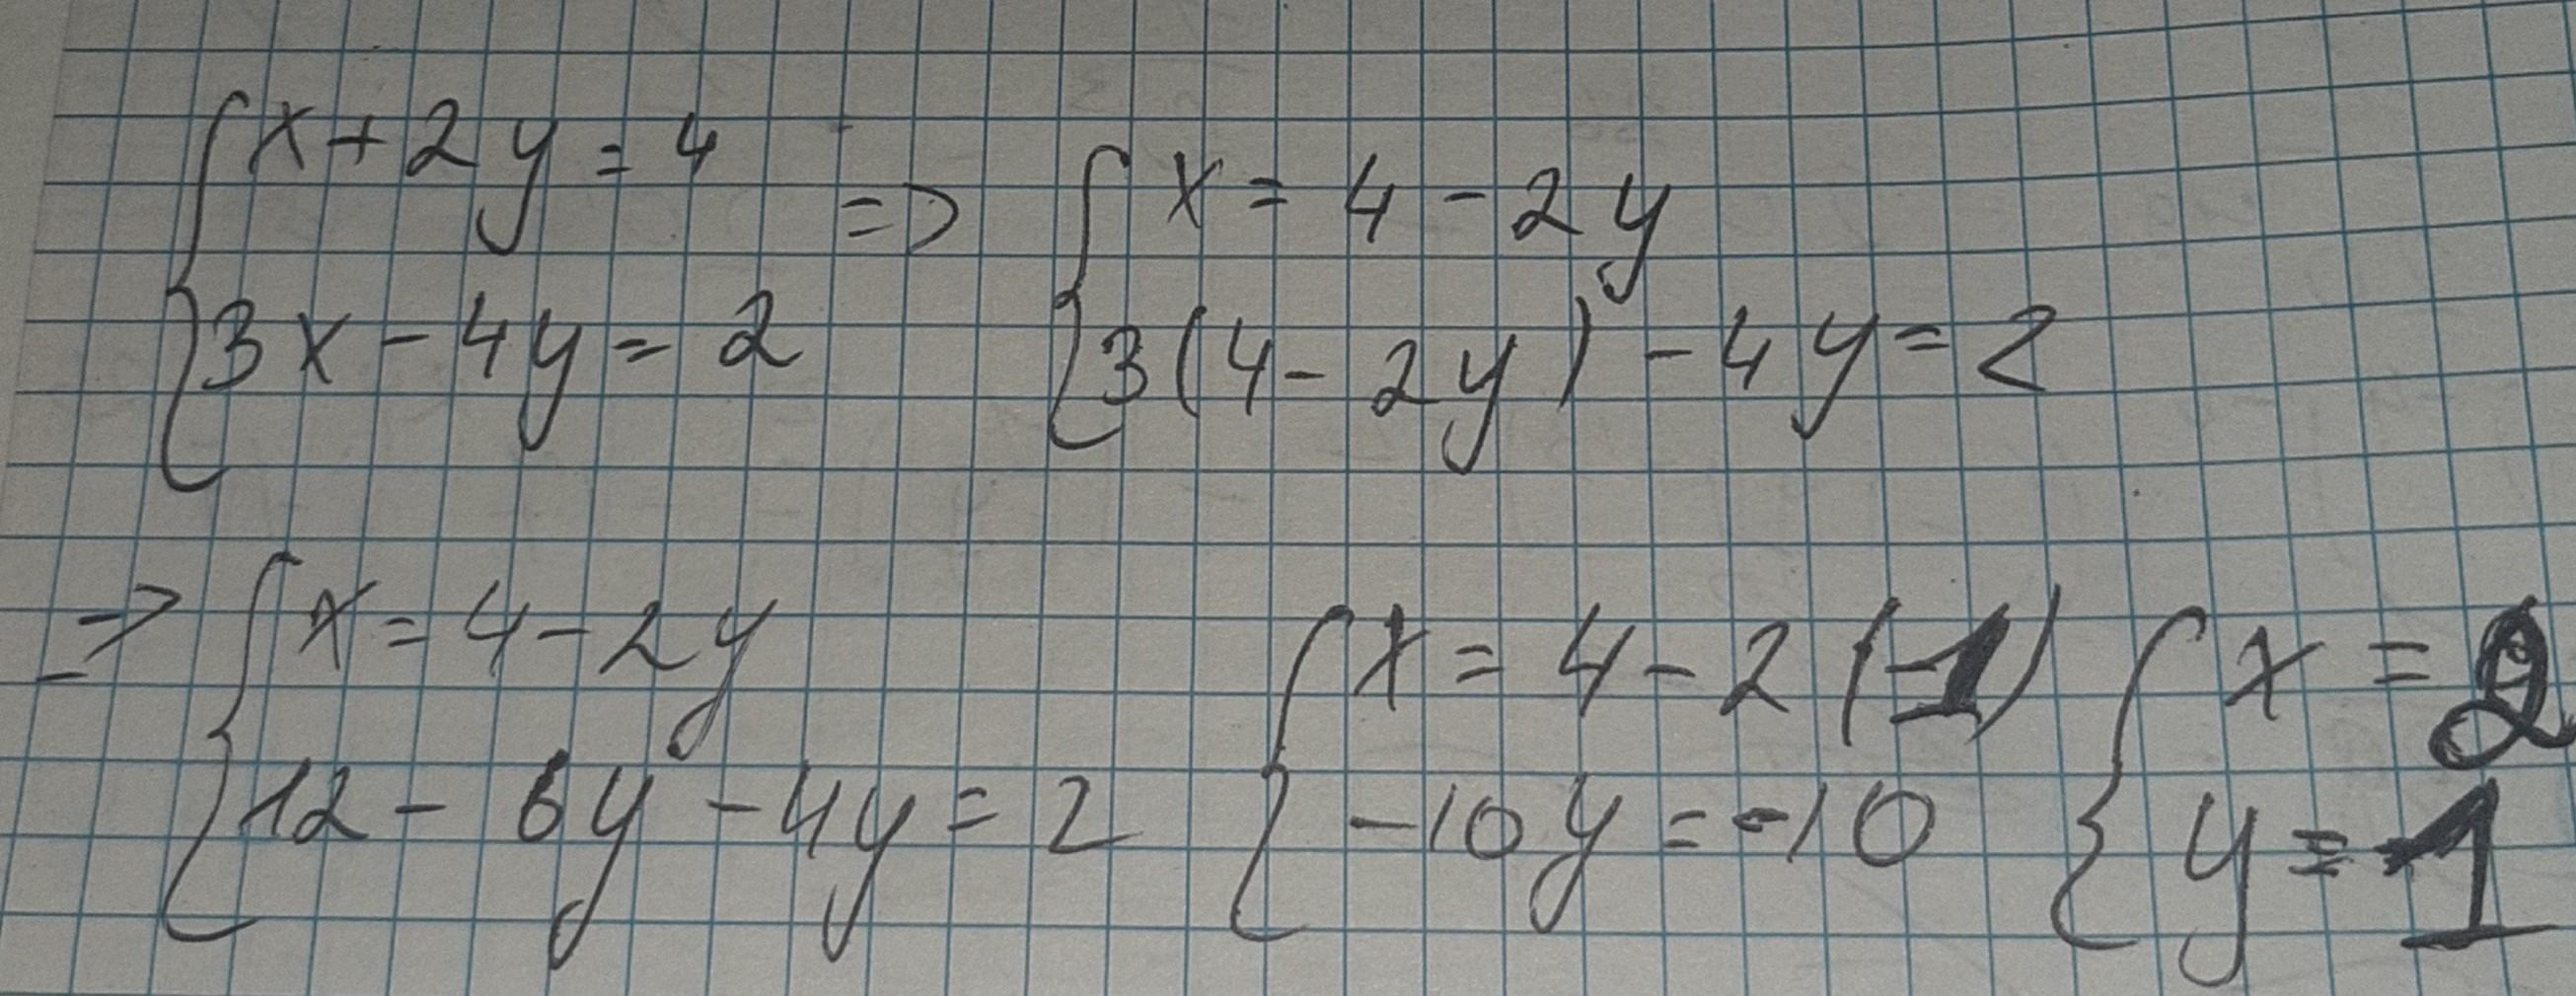 { x + 2y = 4
3x - 4y = 2
=> { x = 4 - 2y
3(4 - 2y) - 4y = 2
=> { x = 4 - 2y
12 - 6y - 4y = 2
{ x = 4 - 2(-1)
-10y = -10
{ x = 2
y = -1